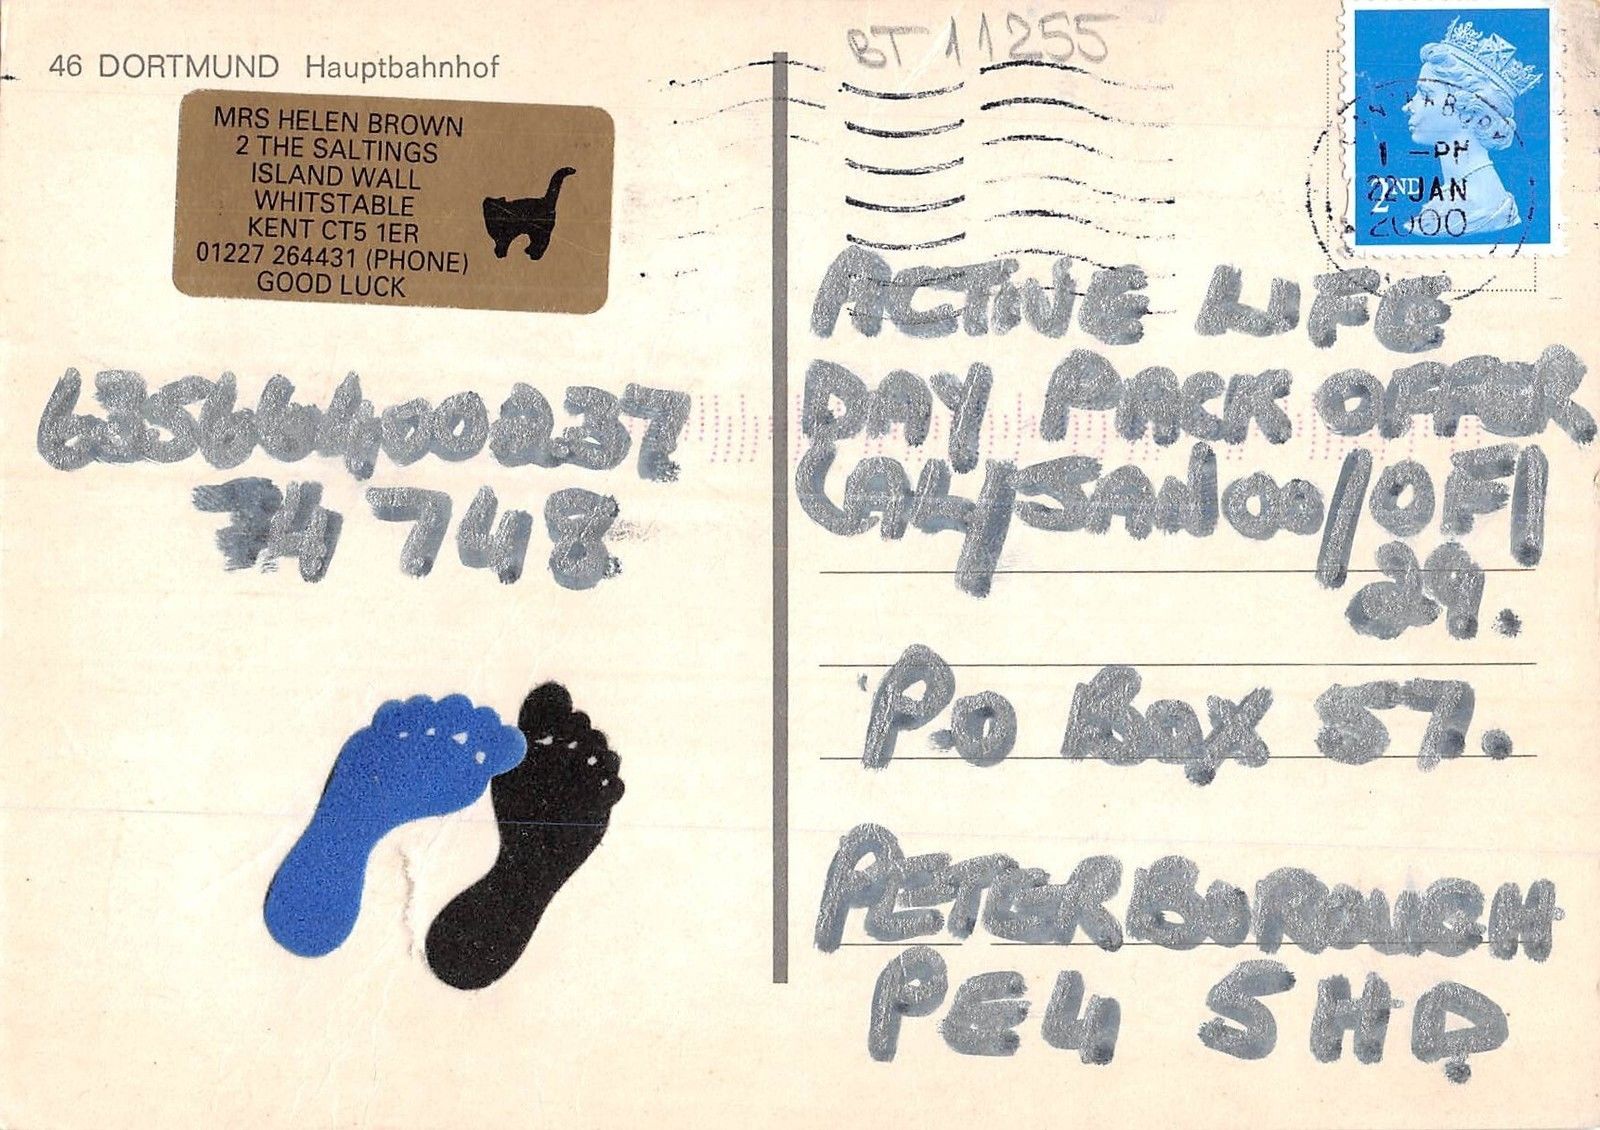 46 DORTMUND Hauptbahnhof
MRS HELEN BROWN
2 THE SALTINGS
ISLAND WALL
WHITSTABLE
KENT CT5 1ER
01227 264431 (PHONE)
GOOD LUCK
63566400237
74 748
BT 11255
2ND
1 -PM
22 JAN
2000
ACTIVE LIFE
DAY PACK OFFER
CAL/JAN00/OF/
29.
P.O BOX 57.
PETERBOROUGH
PE4 5HD